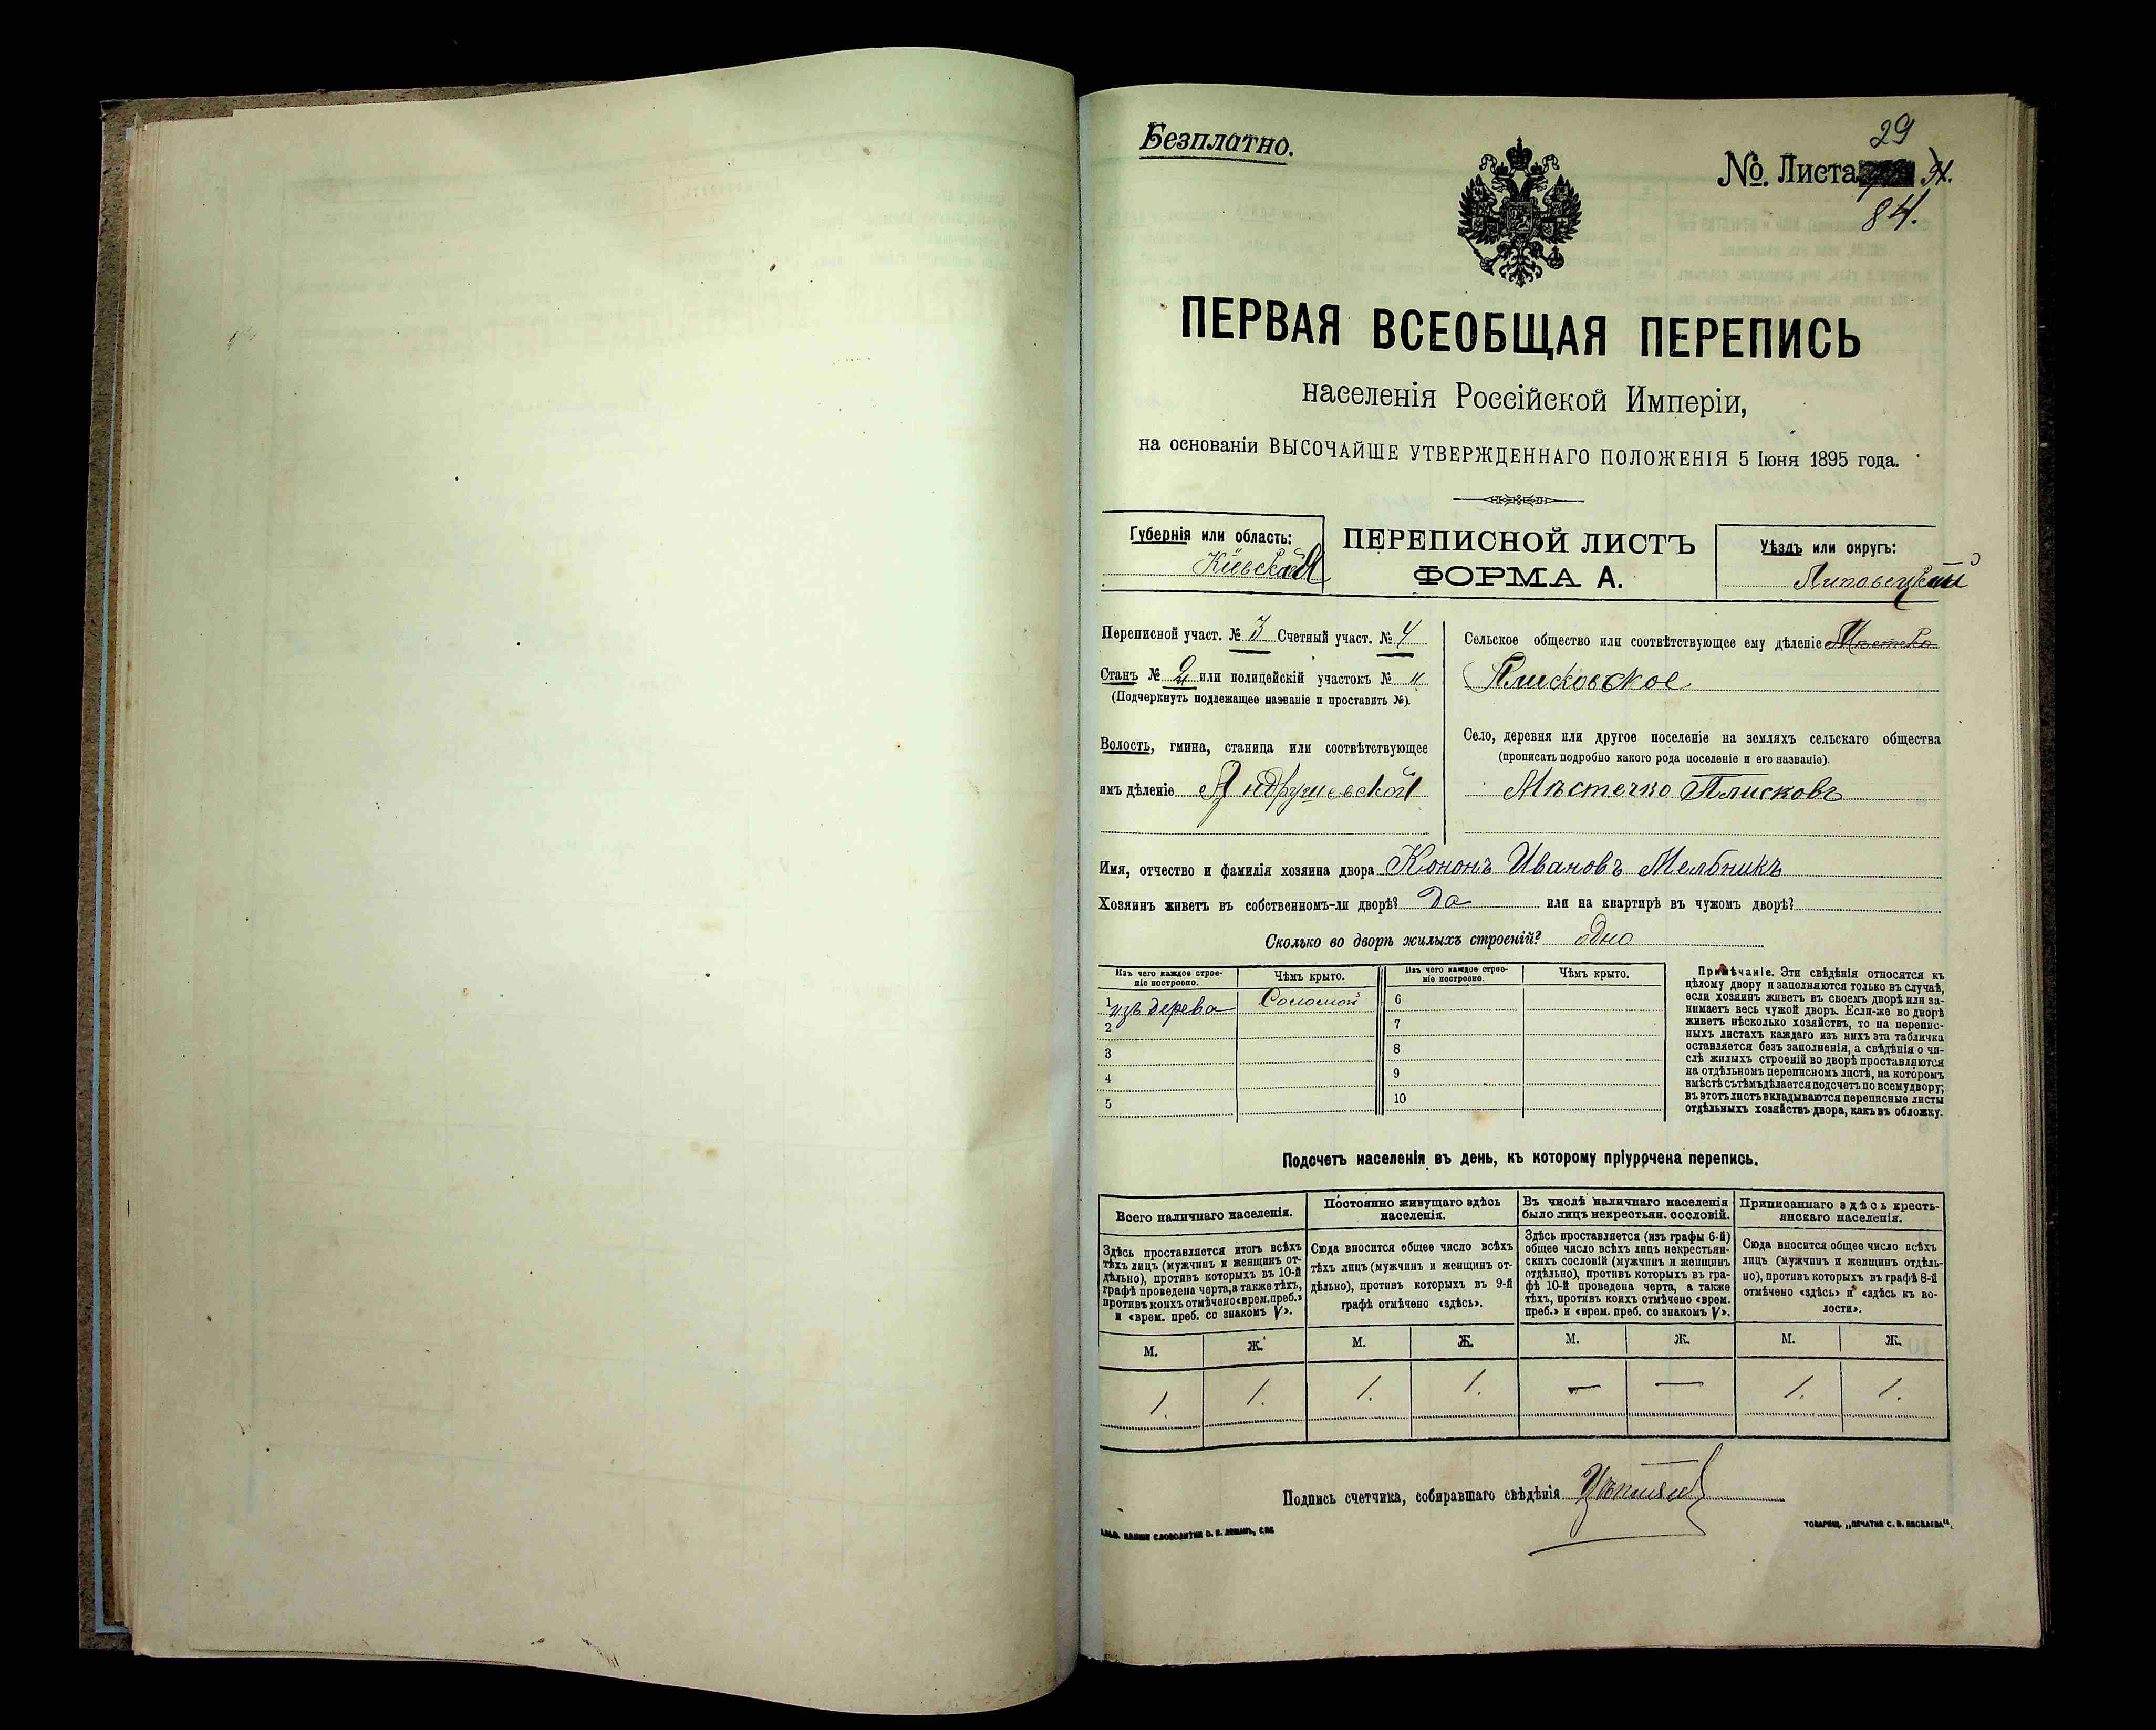 Безплатно.
29
№. Листа
84.
ПЕРВАЯ ВСЕОБЩАЯ ПЕРЕПИСЬ
населенія Россійской Имперіи,
на основаніи ВЫСОЧАЙШЕ УТВЕРЖДЕННАГО ПОЛОЖЕНІЯ 5 Іюня 1895 года.
Губернія или область:
Кіевская
ПЕРЕПИСНОЙ ЛИСТЪ
ФОРМА А.
Уѣздъ или округъ:
Липовецкій
Переписной участ. № 3 Счетный участ. № 4
Станъ № 2 или полицейскій участокъ № "
(Подчеркнуть подлежащее названіе и проставить №).
Волость, гмина, станица или соотвѣтствующее
имъ дѣленіе Андрушевской
Сельское общество или соотвѣтствующее ему дѣленіе Мѣстечко
Плисковское
Село, деревня или другое поселеніе на земляхъ сельскаго общества
(прописать подробно какого рода поселеніе и его названіе).
Мѣстечко Плисковъ
Имя, отчество и фамилія хозяина двора Кононъ Ивановъ Мельникъ
Хозяинъ живетъ въ собственномъ-ли дворѣ? Да или на квартирѣ въ чужомъ дворѣ?
Сколько во дворѣ жилыхъ строеній? одно
Изъ чего каждое строе-
ніе построено.
Чѣмъ крыто.
Изъ чего каждое строе-
ніе построено.
Чѣмъ крыто.
1 изъ дерева Соломой 6
2 7
3 8
4 9
5 10
Примѣчаніе. Эти свѣдѣнія относятся къ
цѣлому двору и заполняются только въ случаѣ,
если хозяинъ живетъ въ своемъ дворѣ или за-
нимаетъ весь чужой дворъ. Если-же во дворѣ
живетъ нѣсколько хозяйствъ, то на перепис-
ныхъ листахъ каждаго изъ нихъ эта табличка
оставляется безъ заполненія, а свѣдѣнія о чи-
слѣ жилыхъ строеній во дворѣ проставляются
на отдѣльномъ переписномъ листѣ, на которомъ
вмѣстѣ съ тѣмъ дѣлается подсчетъ по всему двору;
въ этотъ листъ вкладываются переписные листы
отдѣльныхъ хозяйствъ двора, какъ въ обложку.
Подсчетъ населенія въ день, къ которому пріурочена перепись.
Всего наличнаго населенія.
Здѣсь проставляется итогъ всѣхъ
тѣхъ лицъ (мужчинъ и женщинъ от-
дѣльно), противъ которыхъ въ 10-й
графѣ проведена черта, а также тѣхъ,
противъ коихъ отмѣчено «врем. преб.»
и «врем. преб. со знакомъ V».
Постоянно живущаго здѣсь
населенія.
Сюда вносится общее число всѣхъ
тѣхъ лицъ (мужчинъ и женщинъ от-
дѣльно), противъ которыхъ въ 9-й
графѣ отмѣчено «здѣсь».
Въ числѣ наличнаго населенія
было лицъ некрестьян. сословій.
Здѣсь проставляется (изъ графы 6-й)
общее число всѣхъ лицъ некрестьян-
скихъ сословій (мужчинъ и женщинъ
отдѣльно), противъ которыхъ въ гра-
фѣ 10-й проведена черта, а также
тѣхъ, противъ коихъ отмѣчено «врем.
преб.» и «врем. преб. со знакомъ V».
Приписаннаго здѣсь кресть-
янскаго населенія.
Сюда вносится общее число всѣхъ
лицъ (мужчинъ и женщинъ отдѣль-
но), противъ которыхъ въ графѣ 8-й
отмѣчено «здѣсь» и «здѣсь къ во-
лости».
М. Ж. М. Ж. М. Ж. М. Ж.
1. 1. 1. 1. — — 1. 1.
Подпись счетчика, собиравшаго свѣдѣнія
ТОВАРИЩ. „ПЕЧАТНЯ С. П. ЯКОВЛЕВА".